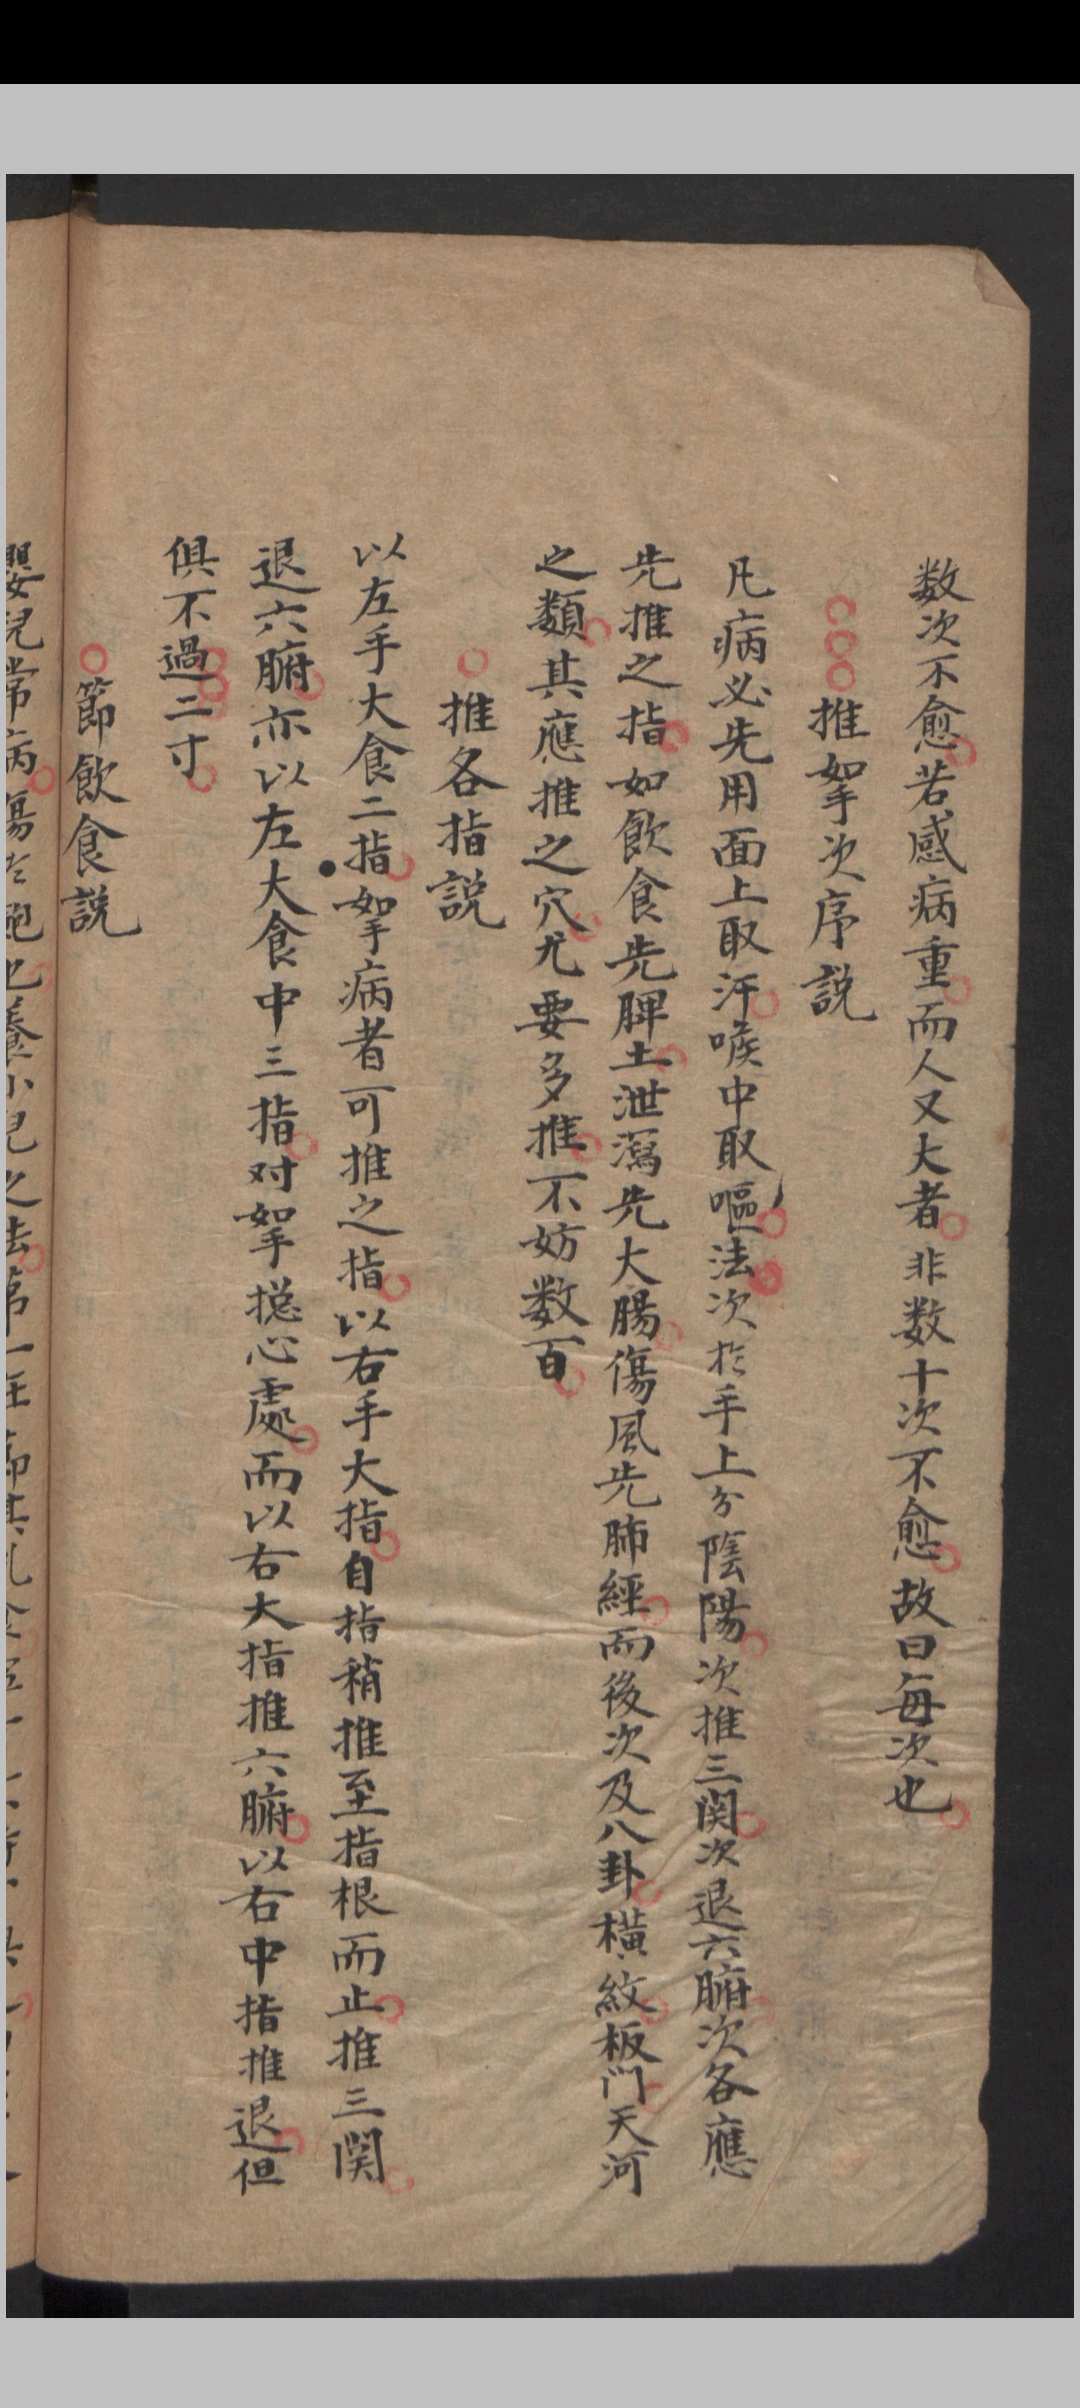 数次不愈若感病重而人又大者非数十次不愈故曰每次也
推拏次序説
凡病必先用面上取汗喉中取嘔法次於手上分陰陽次推三関次退六腑次各應
先推之指如飲食先脾土泄瀉先大腸傷風先肺經而後次及八卦橫紋板门天河
之類其應推之穴尤要多推不妨数百
推各指説
以左手大食二指拏病者可推之指以右手大指自指稍推至指根而止推三関
退六腑亦以左大食中三指对拏揔心處而以右大指推六腑以右中指推退但
俱不過二寸
節飲食説
嬰兒常病傷於飽也養小兒之法第一在節其乳食